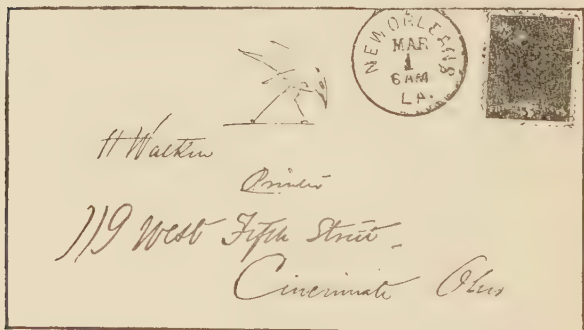 NEW ORLEANS
MAR
1
6 AM
LA.
H Watkin
Printer
119 West Fifth Street
Cincinnati Ohio